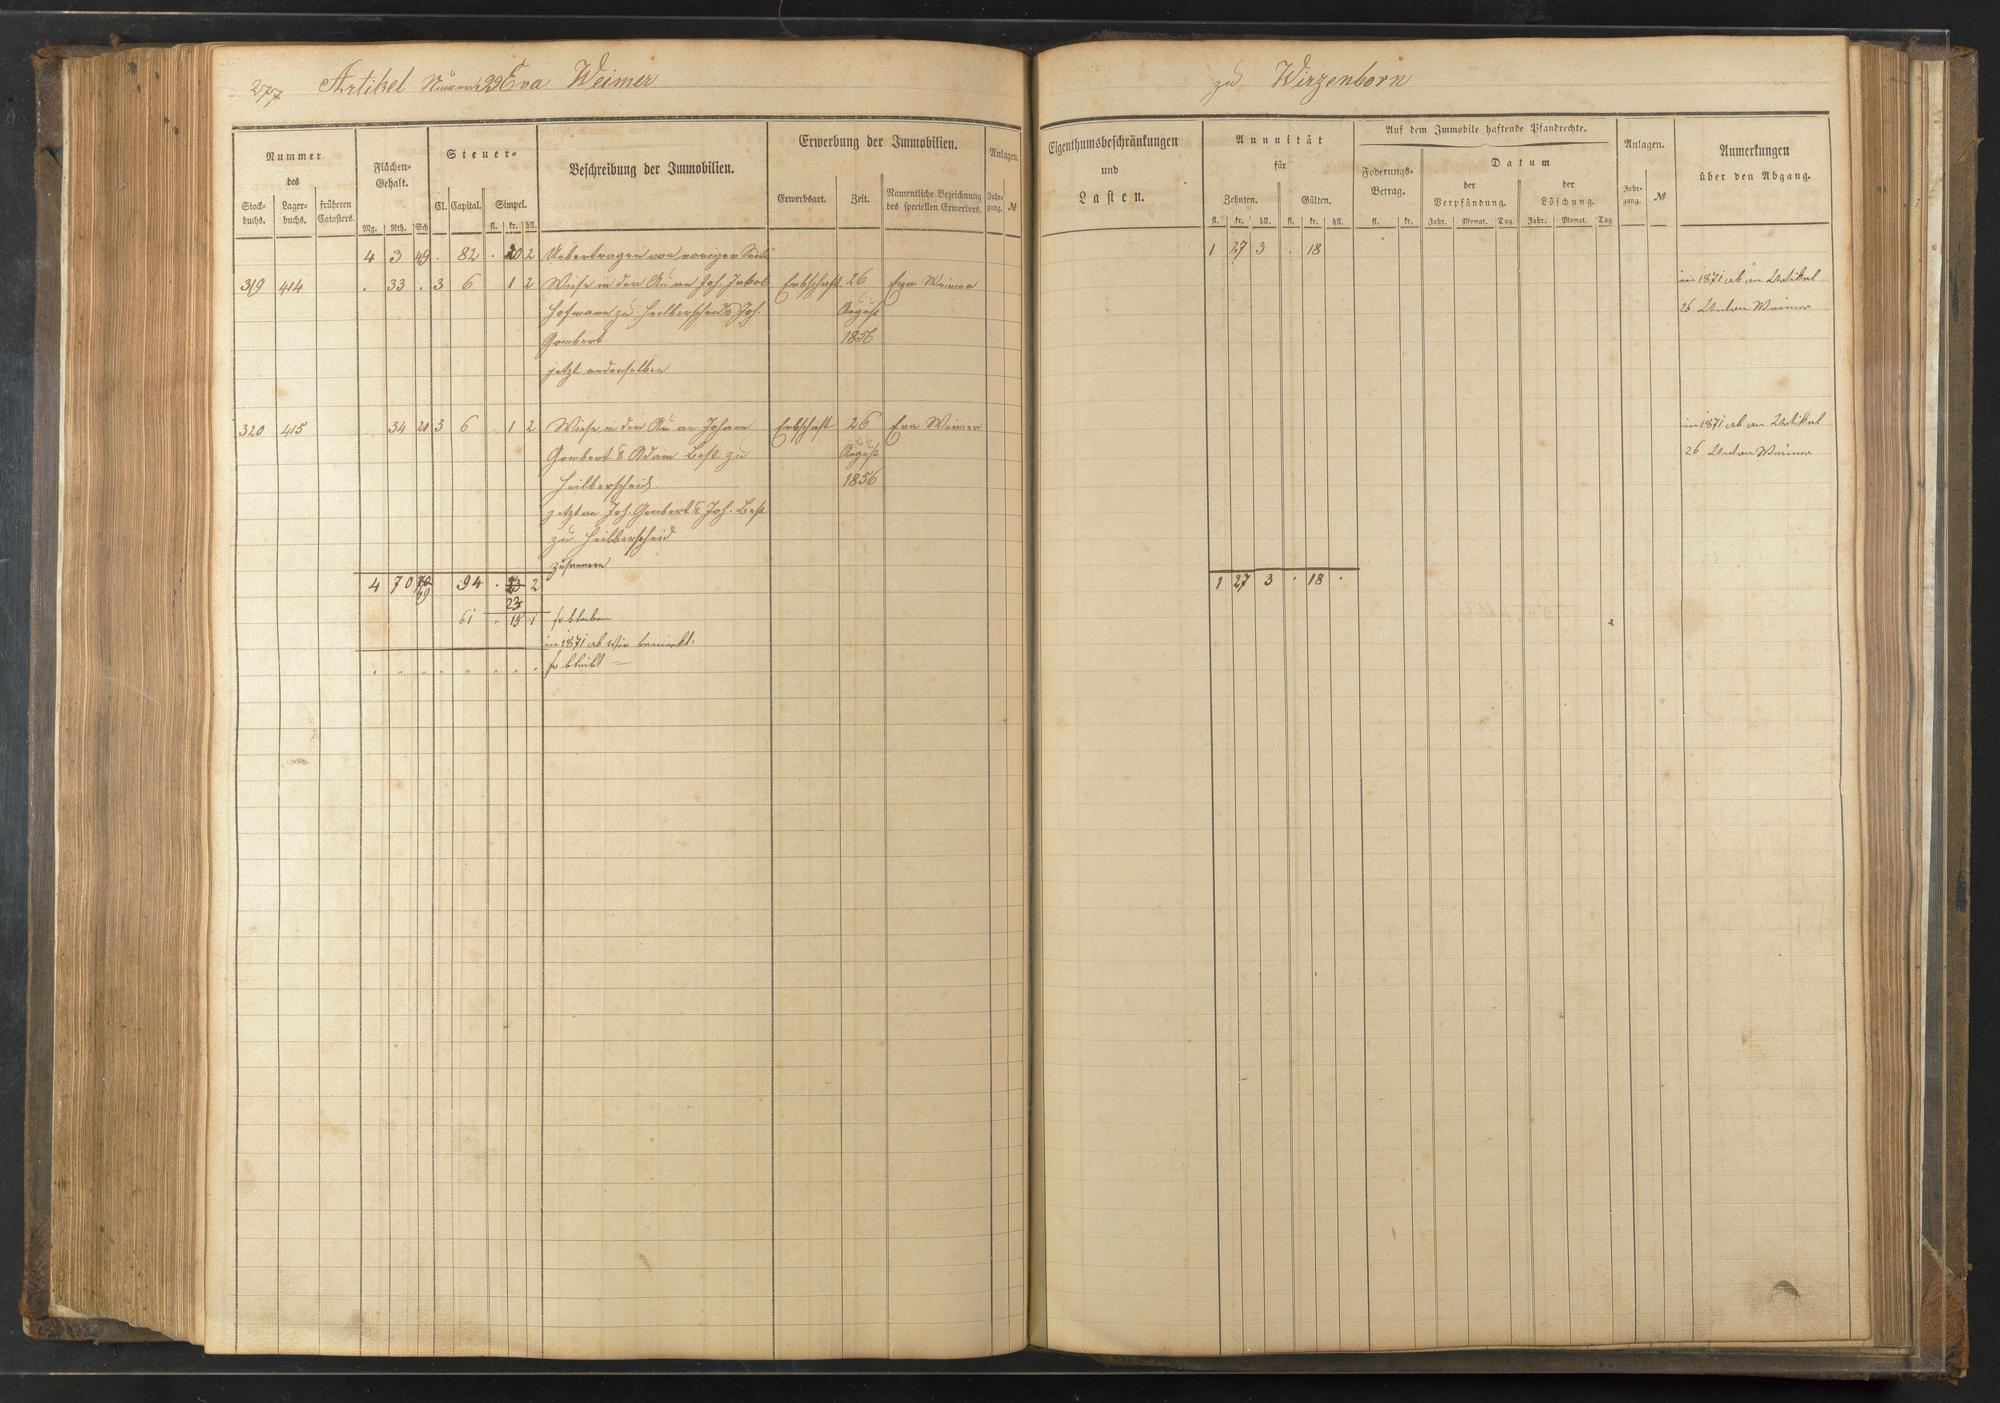 277 Artikel Nummer 39 Eva Weimer
zu Wirzenborn
Nummer des
Stock-buchs. Lager-buchs. früheren Catasters.
Flächen-Gehalt.
Mg. Rth. Sch
Steuer-
Cl. Capital. Simpel.
fl. kr. hll.
Beschreibung der Immobilien.
Erwerbung der Immobilien.
Erwerbsart. Zeit. Namentliche Bezeichnung des speciellen Erwerbers.
Anlagen.
Jahr-gang. №
Eigenthumsbeschränkungen
und
Lasten.
Annuität
für
Zehnten. Gülten.
fl. kr. hll. fl. kr. hll.
Auf dem Immobile haftende Pfandrechte.
Foderungs-Betrag.
fl. kr.
Datum
der Verpfändung. der Löschung.
Jahr. Monat. Tag Jahr. Monat. Tag
Anlagen.
Jahr-gang. №
Anmerkungen
über den Abgang.
4 3 49 . 82 . 20 2 Uebertragen von voriger Seite 1 27 3 . 18
319 414 . 33 . 3 6 1 2 Wiese in der Au an Joh. Jakob Erbschaft 26 Eva Weimer in 1871 ab an Artikel
Hofmann zu Heilberscheid & Joh. August 26 Anton Weimer
Gombert 1856
jetzt an denselben
320 415 . 34 20 3 6 . 1 2 Wiese in der Au an Johann Erbschaft 26 Eva Weimer in 1871 ab an Artikel
Gombert & Adam Best zu August 26 Anton Weimer
Heilberscheid. 1856
jetzt an Joh. Gombert & Joh. Best
zu Heilberscheid
zusammen
4 70 69 94 . 23 2 1 27 3 . 18 .
23
61 " 15 1 so bleiben
in 1871 ab wie bemerkt.
" " " " " " " " so bleibt —